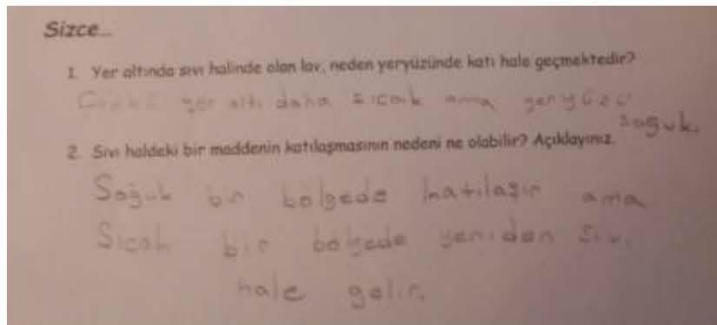 Sizce...
1. Yer altında sıvı halinde olan lav, neden yeryüzünde katı hale geçmektedir?
Çünkü yer altı daha sıcak ama yeryüzü
soğuk.
2. Sıvı haldeki bir maddenin katılaşmasının nedeni ne olabilir? Açıklayınız.
Soğuk bir bölgede katılaşır ama
Sıcak bir bölgede yeniden sıvı
hale gelir.